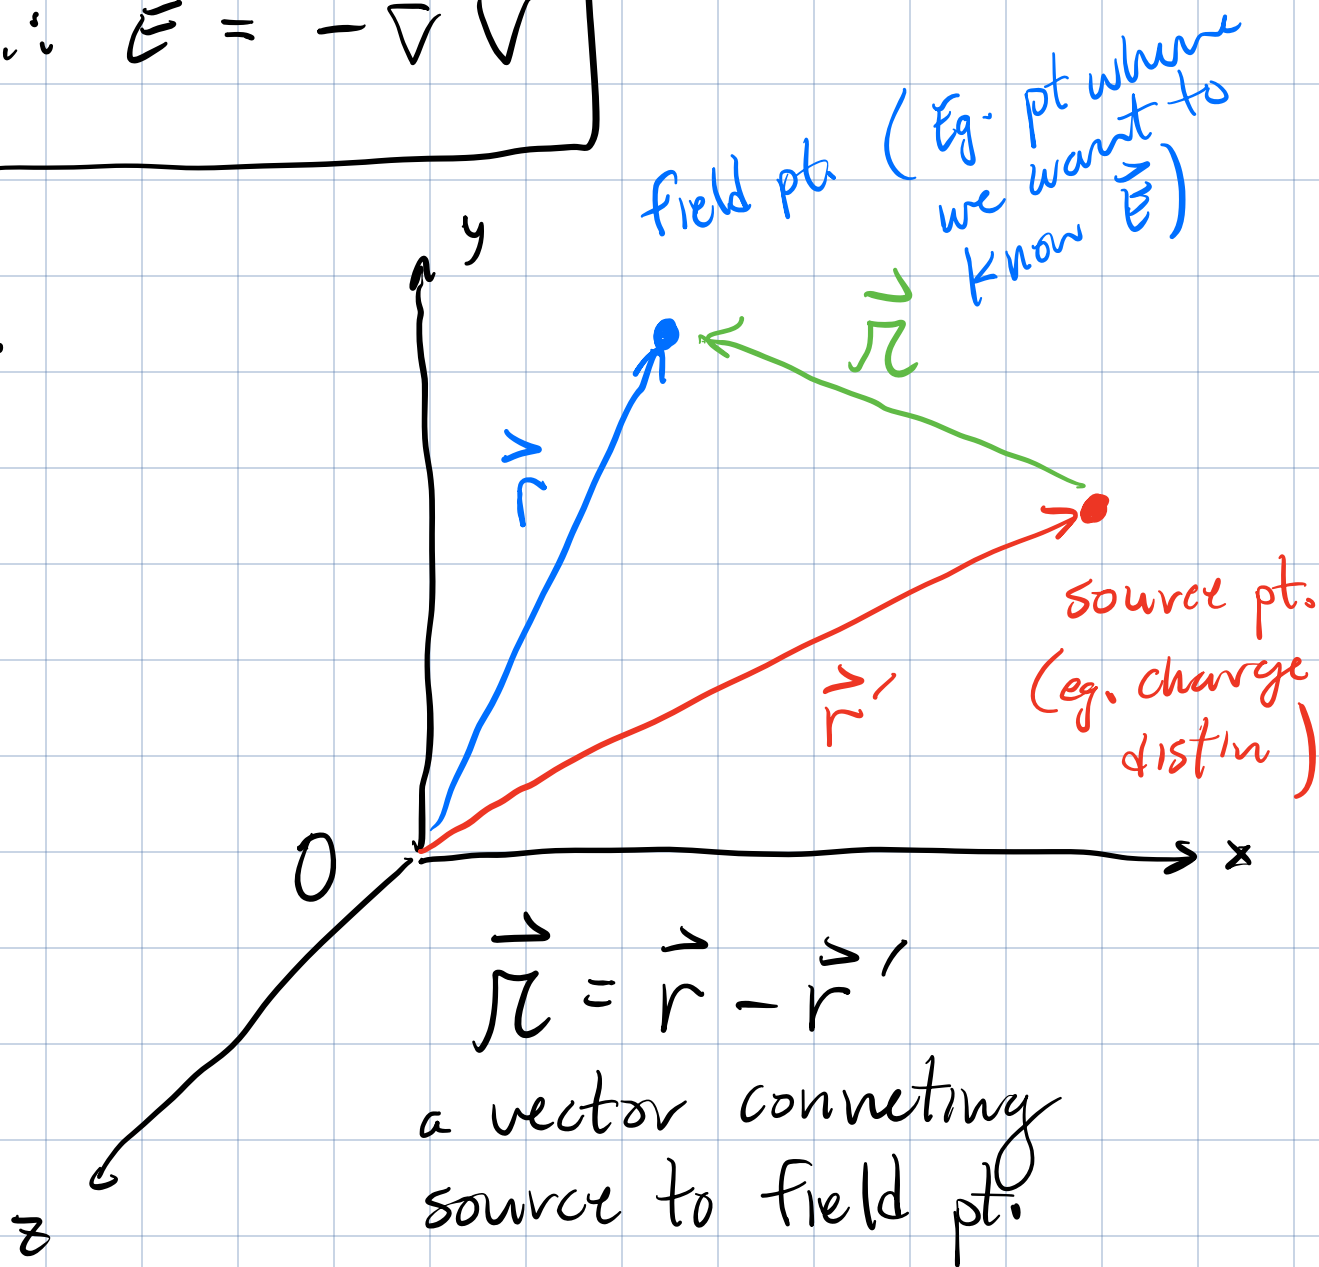 ∴ E⃗ = - ∇ V
field pt. (Eg. pt where
we want to
know E⃗)
y
𝓇⃗
r⃗
source pt.
(eg. charge
distin)
r⃗′
O
x
𝓇⃗ = r⃗ - r⃗′
a vector conneting
source to field pt.
z